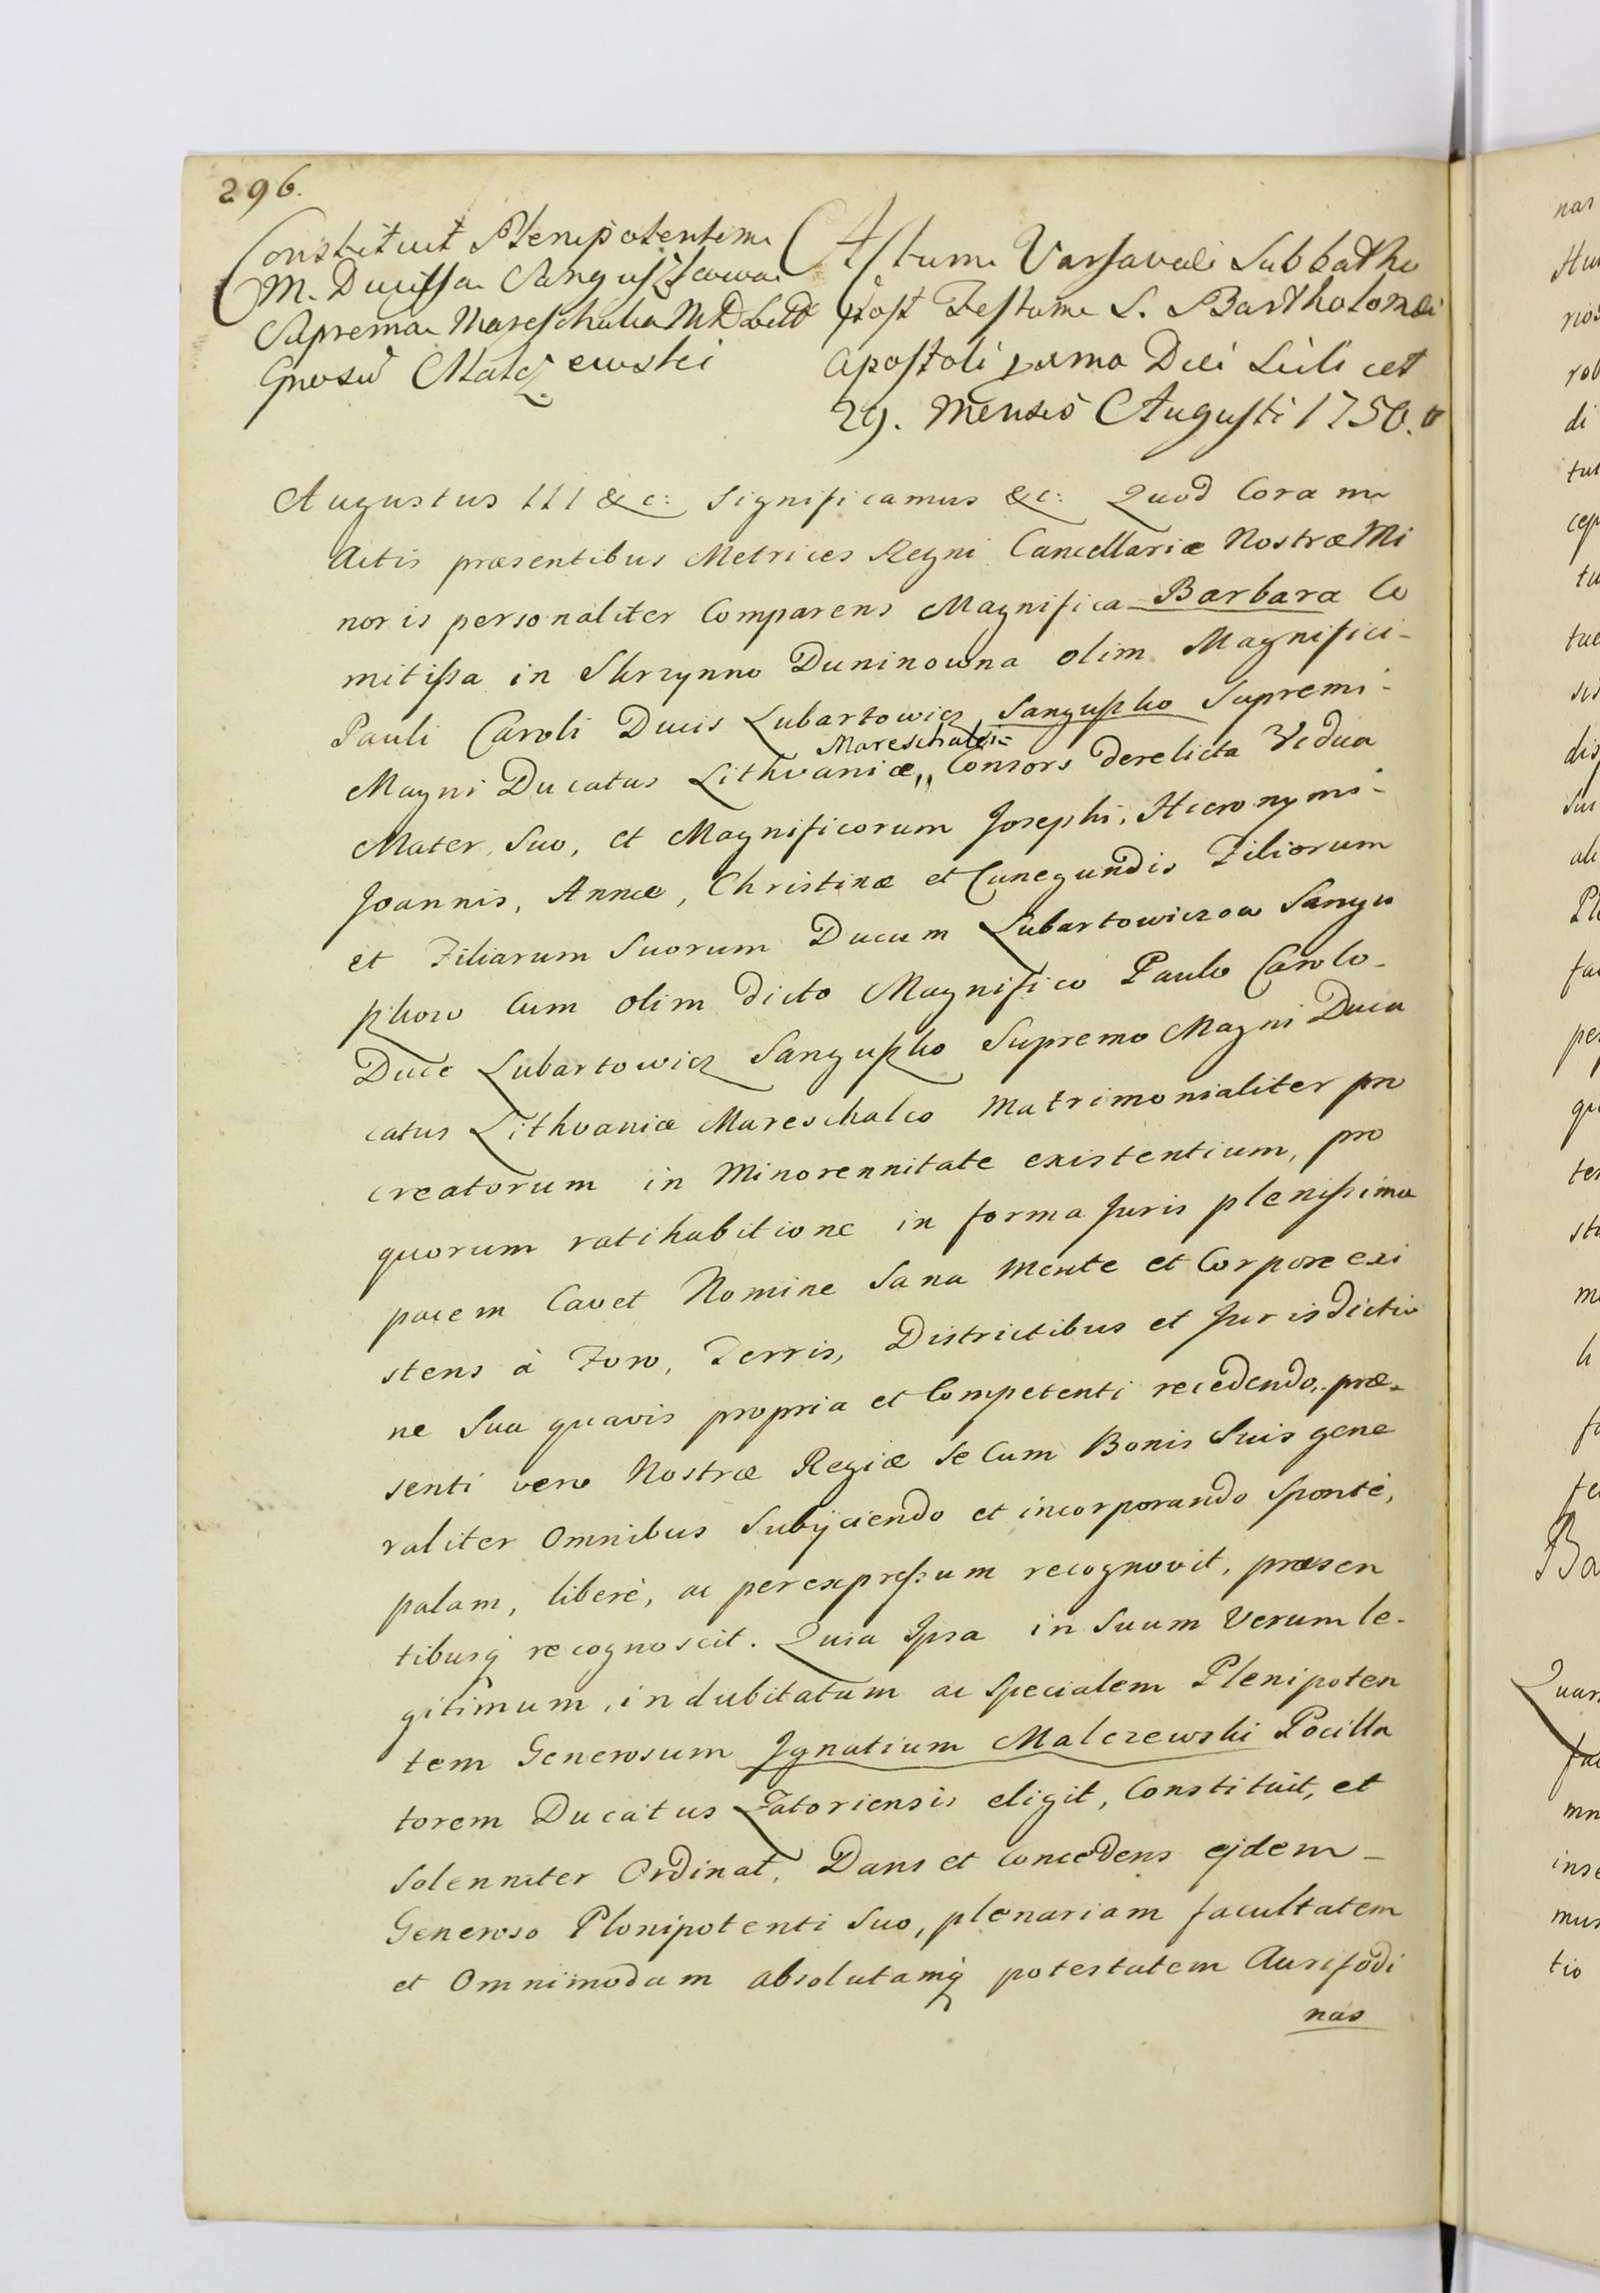 296.
Constituit Plenipotentem
M. Ducissa Sanguszkowa
Suprema Mareschalca M D Litt
Gnosu Malczewski
Actum Varsaviae Sabbatho
post Festum S. Bartholomaei
Apostoli proximo Die scilicet
29. Mensis Augusti 1750.
Augustus III &c: Significamus &c: Quod Coram
Actis præsentibus Metrices Regni Cancellariæ Nostræ Mi
noris personaliter Comparens Magnifica Barbara Co
mitißa in Skrzynno Duninowna olim Magnifici-
Pauli Caroli Ducis Lubartowicz Sangusko Supremi-
Mareschalci=
Magni Ducatus Lithvaniæ,, Consors derelicta Vidua
Mater, Suo, et Magnificorum Josephi, Hieronymi-
Joannis, Annæ, Christinæ et Cunegundis Filiorum
et Filiarum Suorum Ducum Lubartowiczow Sangu
szkow Cum olim dicto Magnifico Paulo Carolo-
Duce Lubartowicz Sanguszko Supremo Magni Duca
catus Lithvaniæ Mareschalco Matrimonialiter pro
creatorum in Minorennitate existentium, pro
quorum ratihabitione in forma Juris plenißima
pacem Cavet Nomine Sana Mente et Corpore exi
stens à Foro, Terris, Districtibus et Jurisdictio
ne Sua quavis propria et Competenti recedendo, præ-
senti vero Nostræ Regiæ se Cum Bonis Suis gene
raliter Omnibus Subijciendo et incorporando Sponte,
palam, liberè, ac per expreßum recognovit, præsen
tibusq recognoscit. Quia Ipsa in Suum Verum le-
gitimum, indubitatum ac Specialem Plenipoten
tem Generosum Ignatium Malczewski Pocilla
torem Ducatus Zatoriensis eligit, Constituit, et
Solenniter Ordinat, Dans et Concedens ejdem-
Generoso Plenipotenti Suo, plenariam facultatem
et Omnimodam absolutamq potestatem Aurifodi
nas